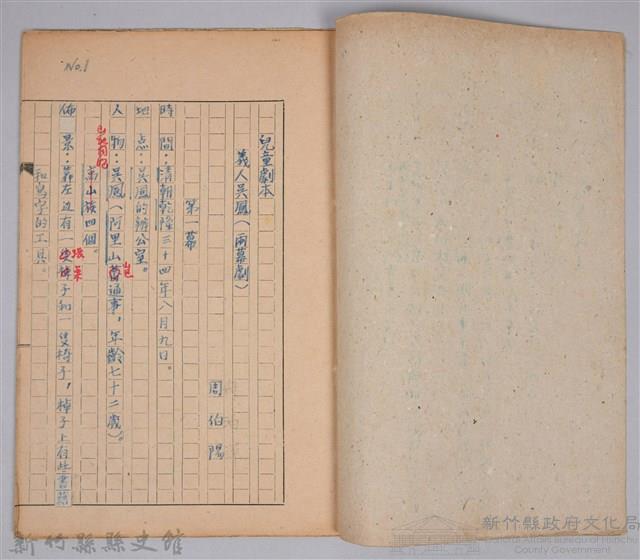 No.1
兒童劇本
義人吳鳳（兩幕劇）
周伯陽
第一幕
時間：清朝乾隆三十四年八月九日。
地点：吳鳳的辦公室。
人物：吳鳳（阿里山通事，年齡七十二歲）。
高山族四個。
佈景：靠左边有一張桌子和一隻椅子，棹子上有些書籍
和寫字的工具。
新竹縣縣史館
新竹縣政府文化局
Cultural Affairs Bureau of Hsinchu
County Government